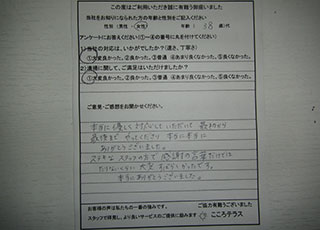 この度はご利用いただき誠に有難う御座いました
当社をお知りになられた方の年齢と性別をご記入ください
性別（男性・女性） 年齢（ 歳）代
アンケートにお答えください①～④の番号に丸を付けてください
1）当社の対応は、いかがでしたか？（速さ、丁寧さ）
①大変良かった。②良かった。③普通 ④あまり良くなかった。⑤良くなかった。
2）清掃に関して、ご満足はいただけましたか？
①大変良かった。②良かった。③普通 ④あまり良くなかった。⑤良くなかった。
ご意見・ご感想をお聞かせください。
本当に優しく対応していただいて 最初から
最後まで やってくださり 本当に本当に
ありがとうございました。
ステキな スタッフの方で 感謝の言葉だけでは
たりないくらい 大変 すばらしかったです。
本当にありがとうございました。
ご協力有難うございました
お客様の声は私たちの一番の強みです。
スタッフで拝見し、より良いサービスのご提供に励みます
こころテラス